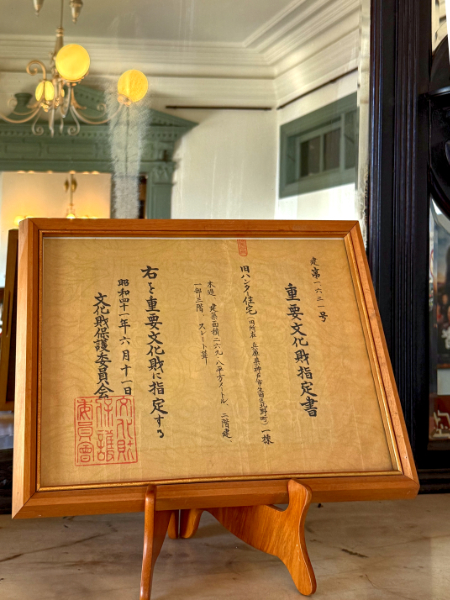 建第一六二一号
重要文化財指定書
旧ハンター住宅
一棟
木造、建築面積二六九・八平方メートル、二階建、
一部三階、スレート葺
右を重要文化財に指定する
昭和四十一年六月十一日
文化財保護委員会
文化財保護委員會